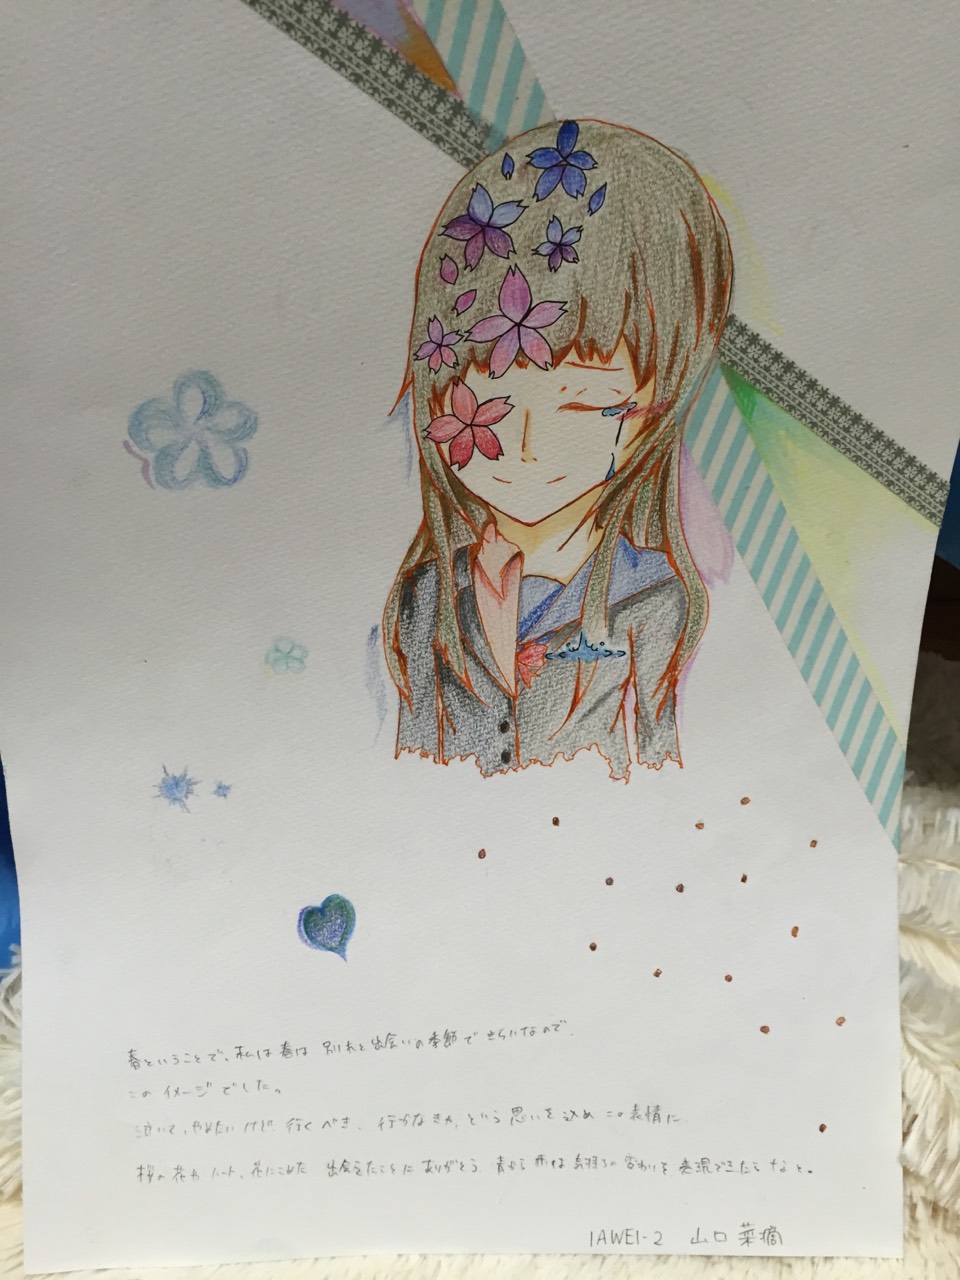 春ということで、私は春は 別れと出会いの季節で きらいなので、
このイメージでした。
泣いて、やめたいけど、行くべき、行かなきゃ、という思いを込め この表情に
桜の花や ハート、花にこめた 出会えたことに ありがとう 青から 赤は の変わりを 表現できたらなと。
1AWE1-2 山口 菜摘